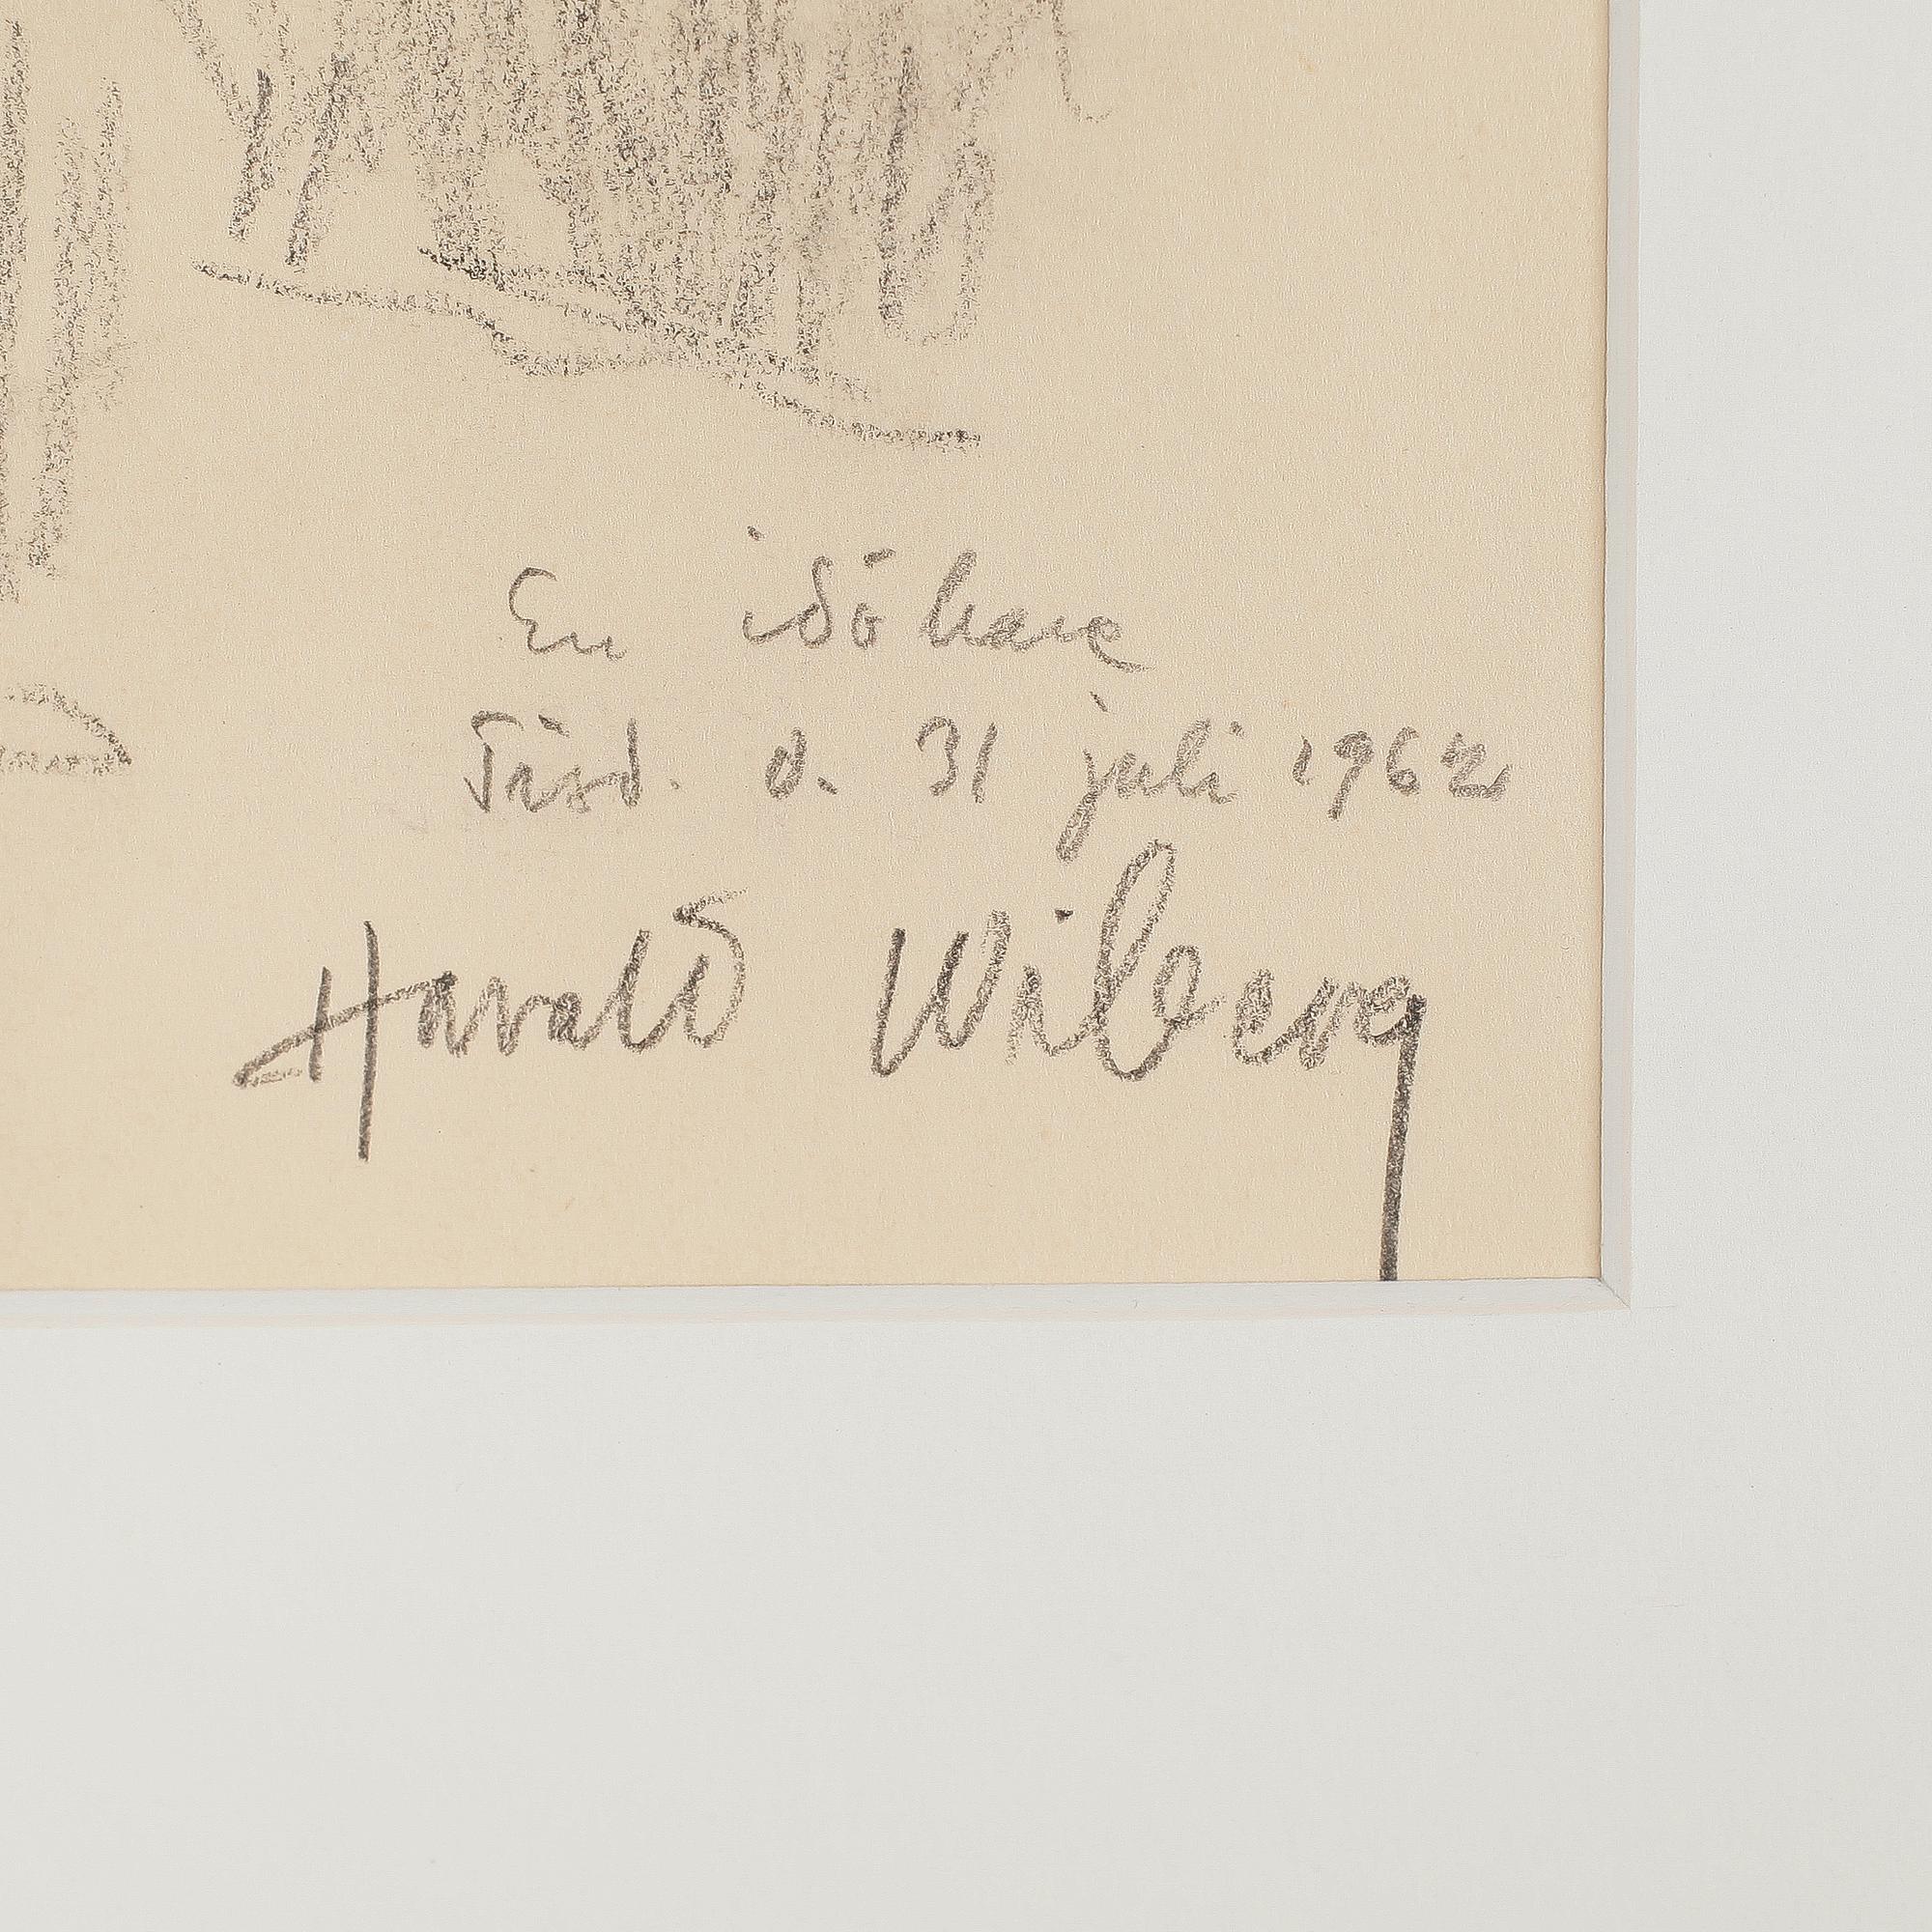 En idöhare
Tisd. d. 31 juli 1962
Harald Wiberg